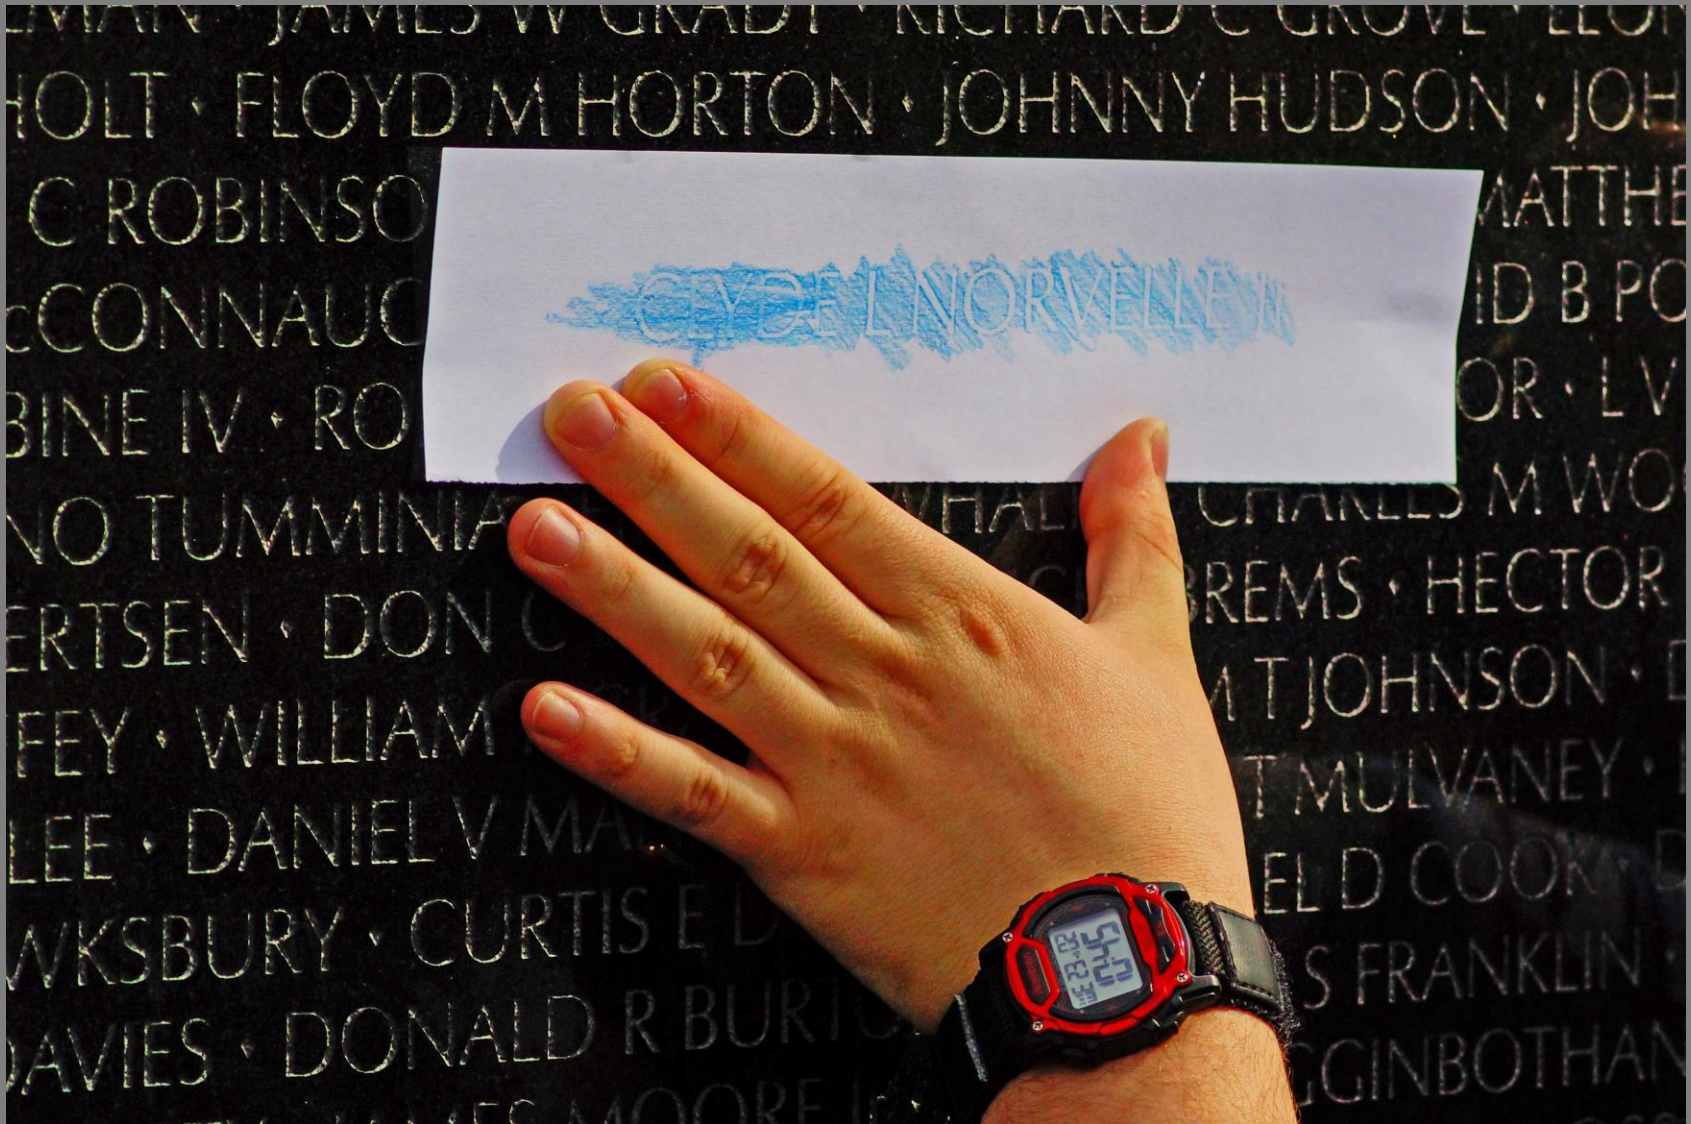 JAMES W GRADY · RICHARD C GROVE ·
HOLT · FLOYD M HORTON · JOHNNY HUDSON · JOH
C ROBINSO MATTHE
CLYDE L NORVELLE
McCONNAUG ID B PO
BINE IV · RO OR · L V
NO TUMMINIA WHAL CHARLES M WO
ERTSEN · DON C BREMS · HECTOR
FEY · WILLIAM M T JOHNSON · D
LEE · DANIEL V MA T MULVANEY ·
WKSBURY · CURTIS E D EL D COOK · D
S FRANKLIN ·
DAVIES · DONALD R BURTO GGINBOTHAN
JAMES MOORE Jr ·